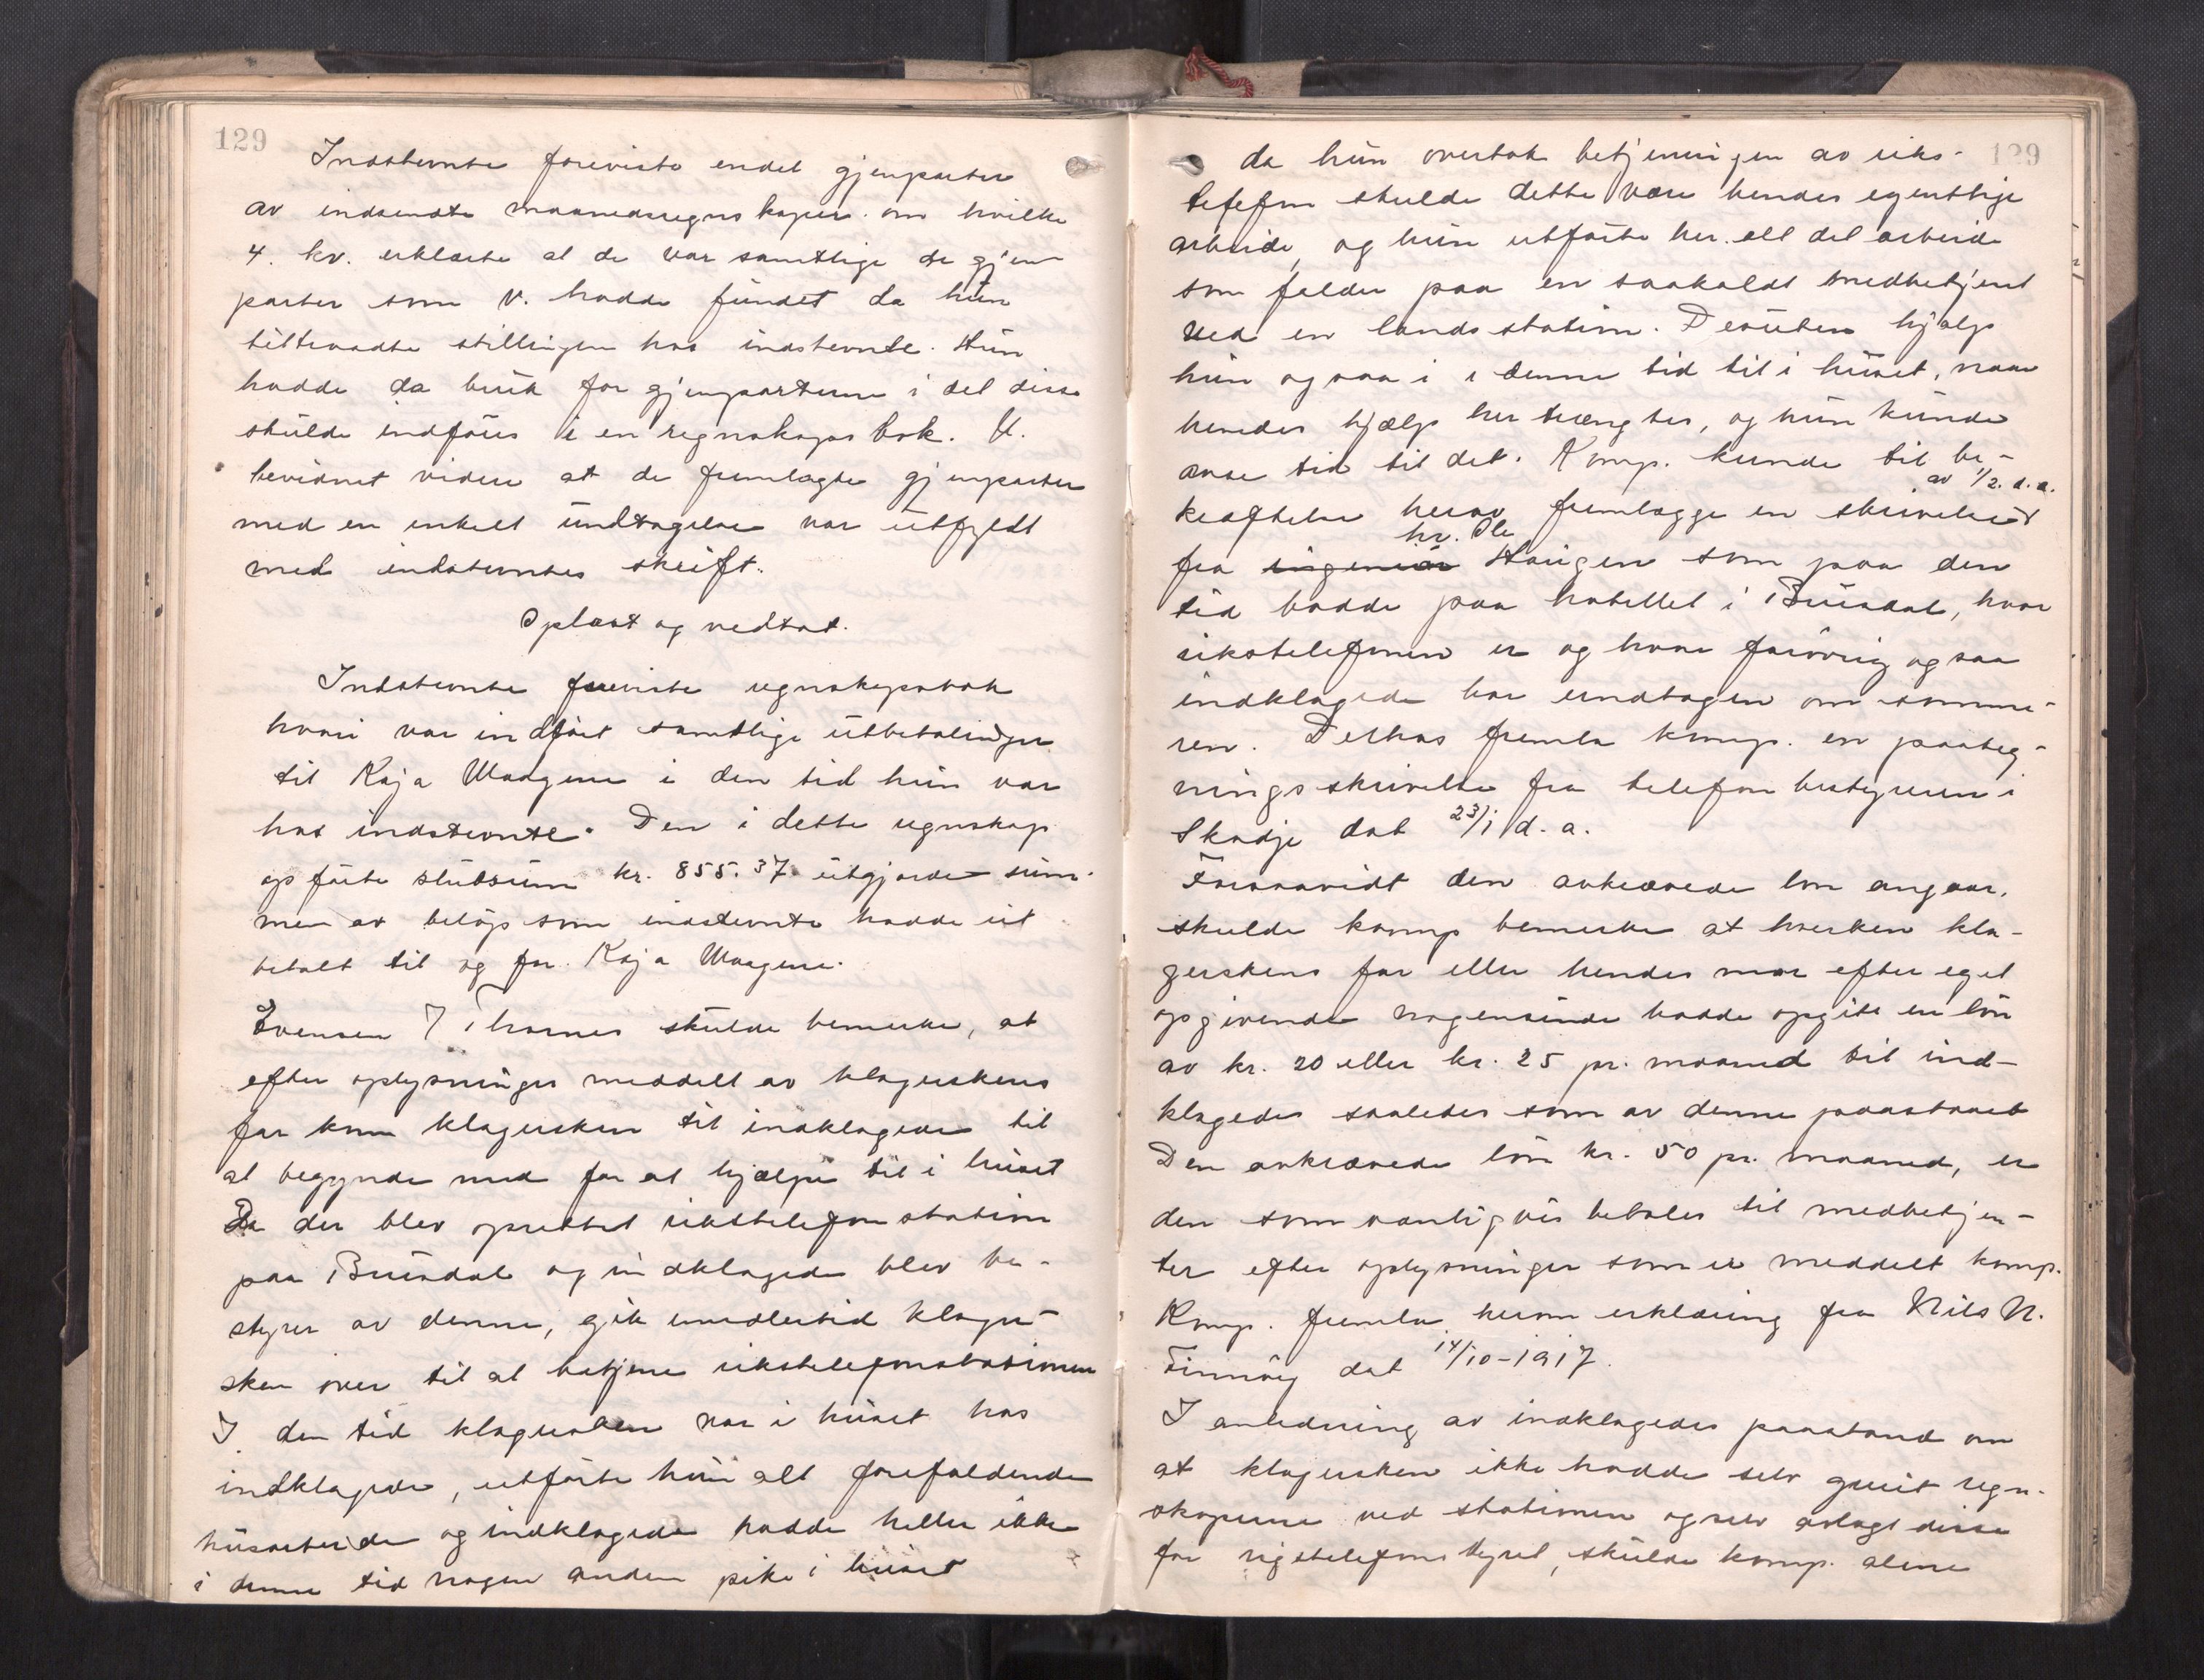 129
Indstevnte foreviste endel gjenparter
av indsendte maanedsregnskaper. om hvilke
4. kv. erklærte at de var samtlige de gjen-
parter som V. hadde fundet da hun
tiltraadte stillingen hos indstevnte. Hun
hadde da bruk for gjenparterne i det disse
skulde indføres i en regnskaps bok. V.
bevidnet videre at de fremlagte gjenparter
med en enkelt undtagelse var utfyldt
med indstevntes skrift.
Oplæst og vedtat.
Indstevnte foreviste regnskapsbok
hvori var indført samtlige utbetalinger
til Kaja Waagene i den tid hun var
hos indstevnte. Den i dette regnskap
opførte slutsum kr. 855.37 utgjorde sum-
men av beløp som indstevnte hadde ut
betalt til og for Kaja Waagene.
Evensen T. Thornes skulde bemerke, at
efter oplysninger meddelt av klagerskens
far kom klagersken til indklagede til
at begynde med for at hjælpe til i huset
Da der blev oprettet rikstelefonstation
paa Bursdal og indklagede blev be-
styrer av denne, gik imidlertid klager-
sken over til at betjene rikstelefonstationen
I den tid klagersken var i huset hos
indklagede, utførte hun alt forefaldende
husarbeide og indklagede hadde heller ikke
i denne tid nogen anden pike i huset
129
da hun overtok betjeningen av riks-
telefon skulde dette være hendes egentlige
arbeide, og hun utførte her alt det arbeide
som falder paa en saakaldt medbetjent
ved en landsstation. Desuten hjalp
hun ogsaa i i denne tid til i huset, naar
hendes hjælp her trængtes, og hun kunde
avse tid til det. Komp. kunde til be-
av 1/2. d. a.
kræftelse herav fremlægge en skrivelse
hr. Ole
fra ingeniør Haugen som paa den
tid bodde paa hotellet i Bursdal, hvor
rikstelefonen er og hvor forøvrig ogsaa
indklagede bor undtagen om somme-
ren. Derhos fremla komp. en paateg-
ningsskrivelse fra telefonbestyreren i
Skodje dat 23/1 d. a.
Forsaavidt den avkrævede løn angaar,
skulde komp bemerke at hverken kla-
gerskens far eller hendes mor efter eget
opgivende nogensinde hadde opgitt en løn
av kr. 20 eller kr. 25 pr. maaned til ind-
klagede saaledes som av denne paastaaet
Den avkrævede løn kr. 50 pr. maaned, er
den som vanligvis betales til medbetjen-
ter efter oplysninger som er meddelt komp.
Komp. fremla herom erklæring fra Nils N.
Finnøy dat 14/10-1917.
I anledning av indklagedes paastand om
at klagersken ikke hadde selv greiet regn-
skaperne ved stationen og selv avlagt disse
for rigstelefonstyret, skulde komp. alene